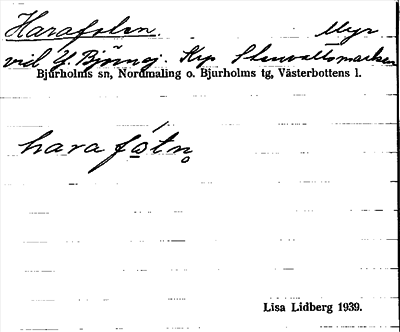 Harafoten. Myr
vid Y. Bjönnsj. Krp Stenvattsmarken
Bjurholms sn, Nordmaling o. Bjurholms tg, Västerbottens l.
hara fó̲tn̥
Lisa Lidberg 1939.